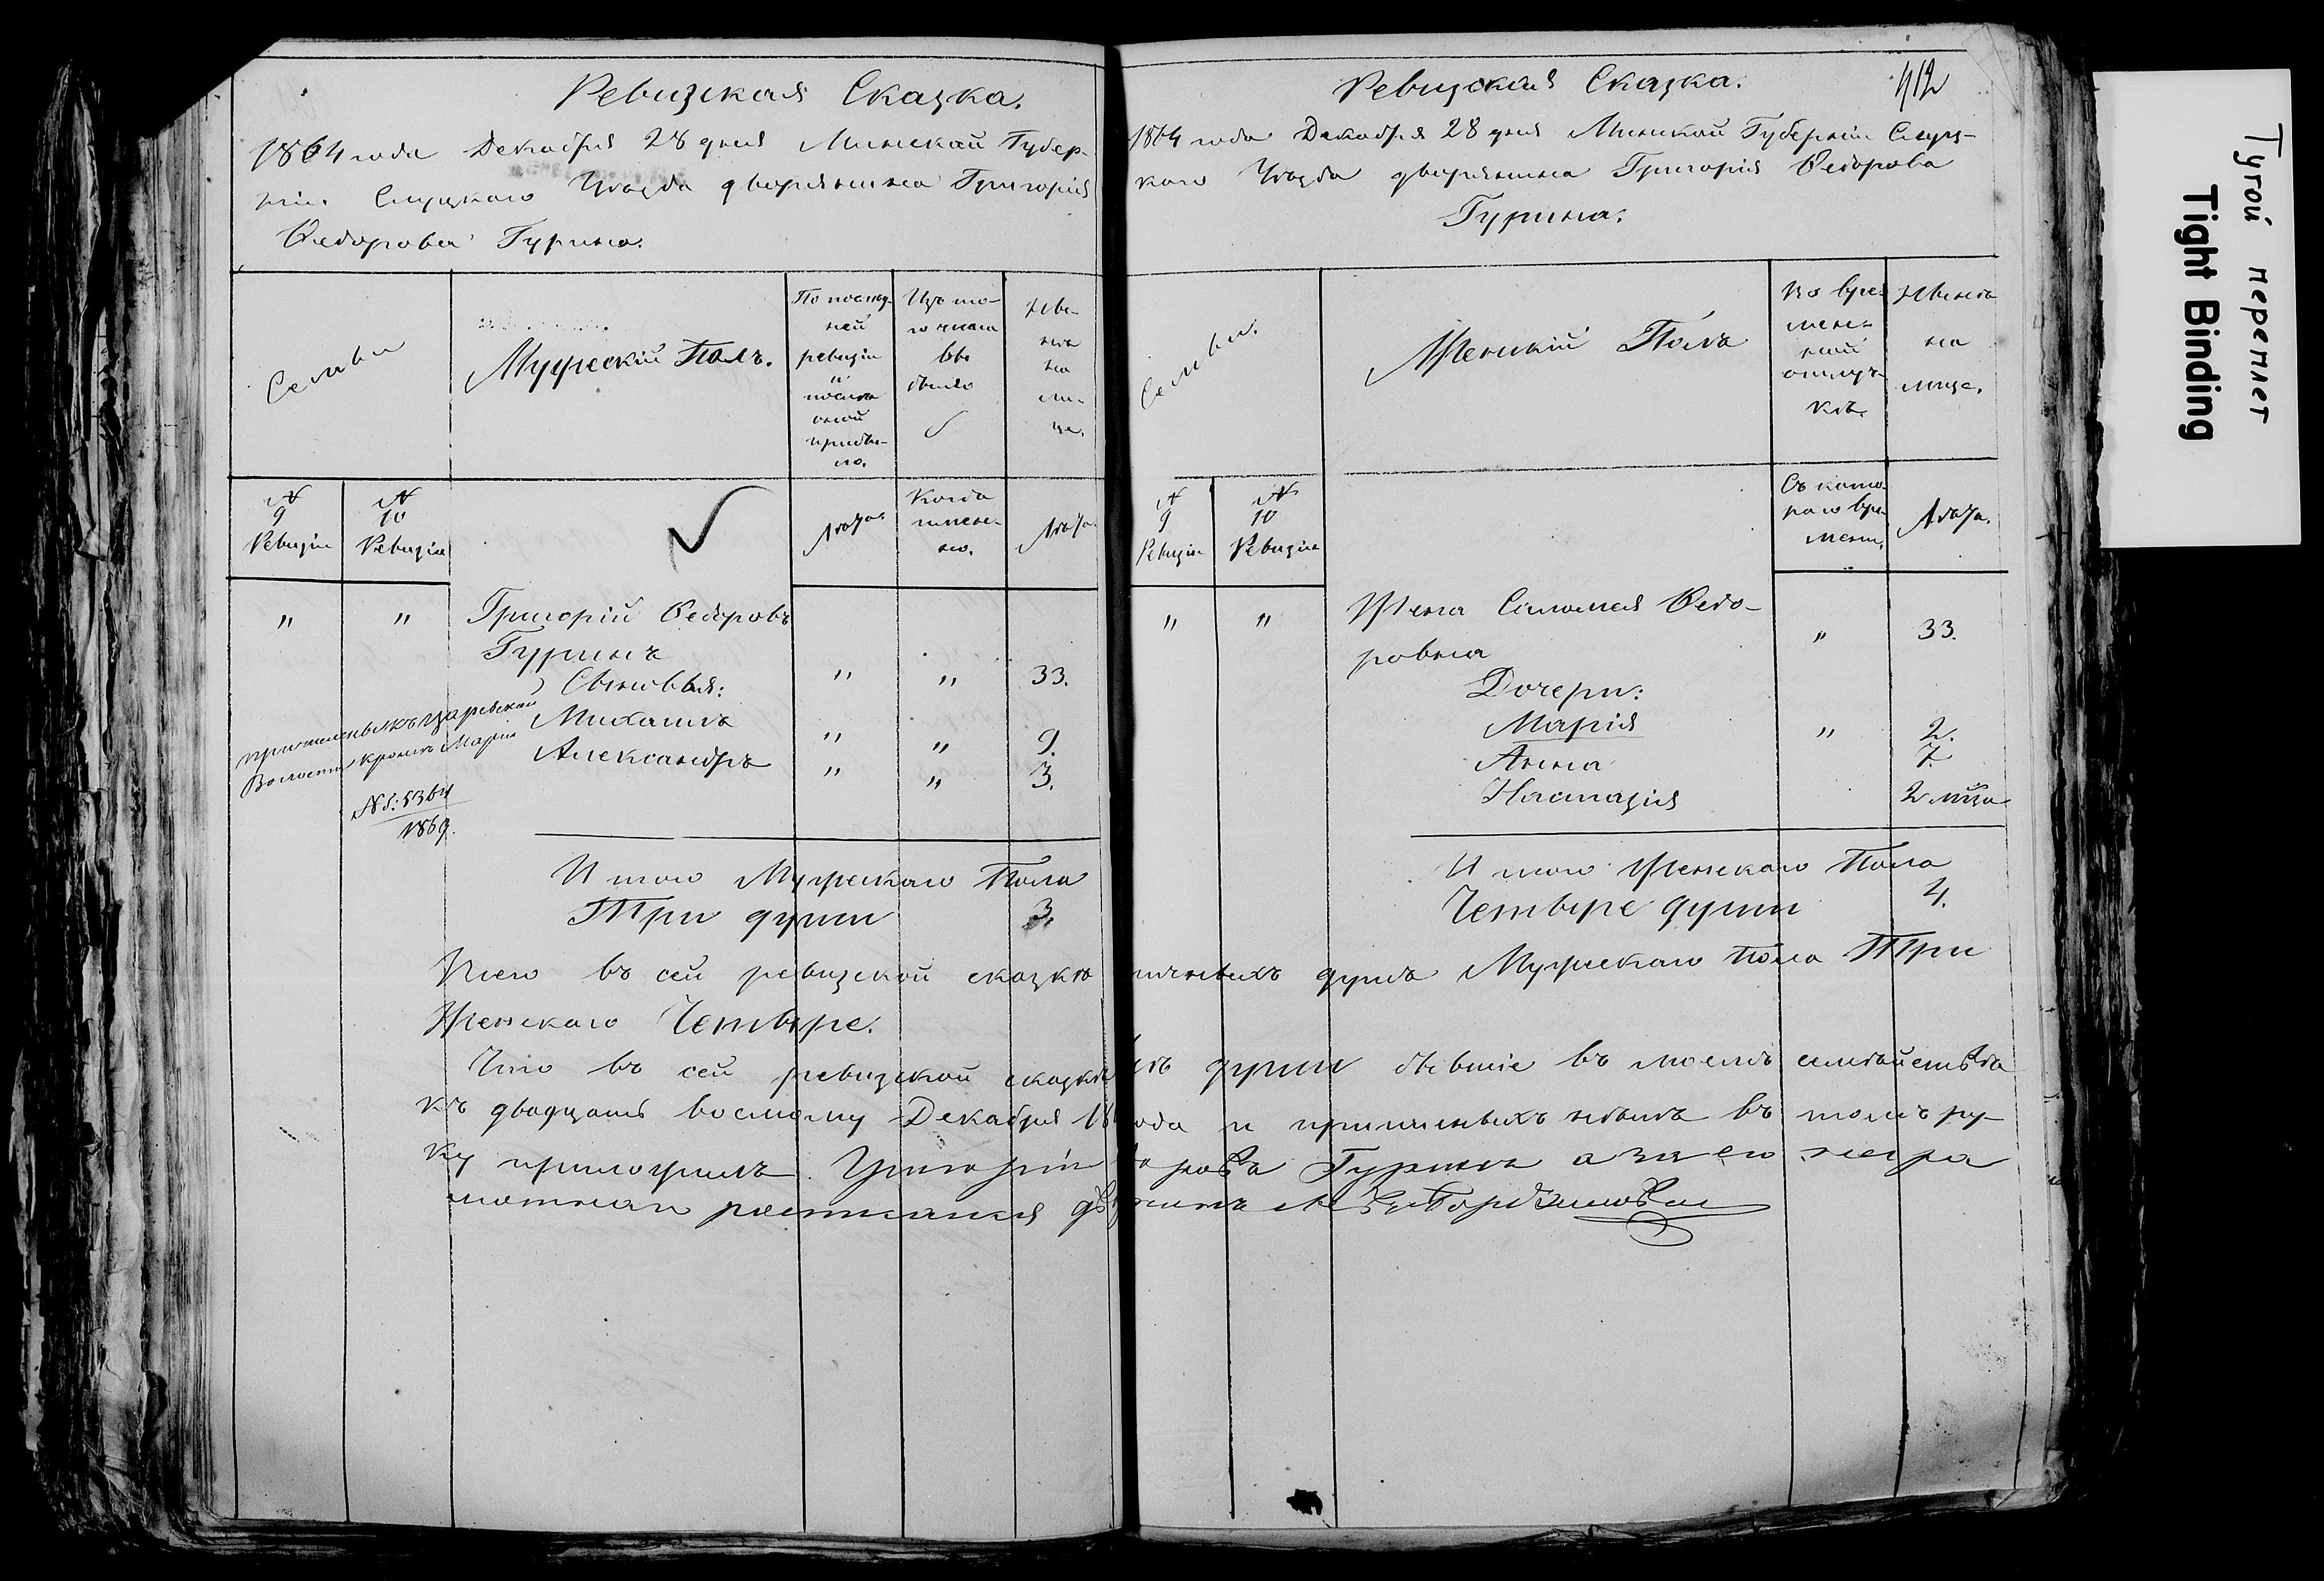 Ревизская Сказка.
1864 года Декабря 28 дня Минской Губер-
ніи Слуцкаго Уѣзда дворянина Григорія
Ѳедорова Гурина.
Семьи
Мужескій Полъ.
По послѣд-
ней
ревизіи
и
послѣ
оной
прибы-
ло.
Изъ то-
го числа
вы
было
Ны-
нѣ
на
ли-
це.
№
9
Ревизіи
№
10
Ревизіи
Лѣта.
Когда
именно.
Лѣта.
" " Григорій Ѳедоровъ
Гуринъ " " 33.
Сыновья:
Михаилъ " " 9.
Александръ " " 3.
причислены къ Царевской
Волости кромѣ Маріи
№ 5364
1869.
Итого Мужескаго Пола
Три души 3.
Ревизская Сказка.
412
1864 года Декабря 28 дня Минской Губерніи Слуц-
каго Уѣзда дворянина Григорія Ѳедорова
Гурина.
Семьи.
Женскій Полъ
Во вре-
мен-
ной
отлуч-
кѣ.
Нынѣ
на
лице.
№
9
Ревизіи
№
10
Ревизіи
Съ кото-
раго вре-
мени.
Лѣта.
" " Жена Саломея Ѳедо-
ровна " 33.
Дочери:
Марія " 2.
Анна 7.
Настазія 2 мца
Итого Женскаго Пола
Четыре души 4.
Всего въ сей ревизской сказкѣ душъ Мужескаго Пола Три
Женскаго Четыре.
Что въ сей ревизской сказкѣ души бывшіе въ моемъ семѣйствѣ
къ двадцать восьмому Декабря и прописныхъ нѣтъ въ томъ ру-
ку приложилъ. Григорій Гуринъ а за его негра
мотнаго росписался
Тугой переплет
Tight Binding